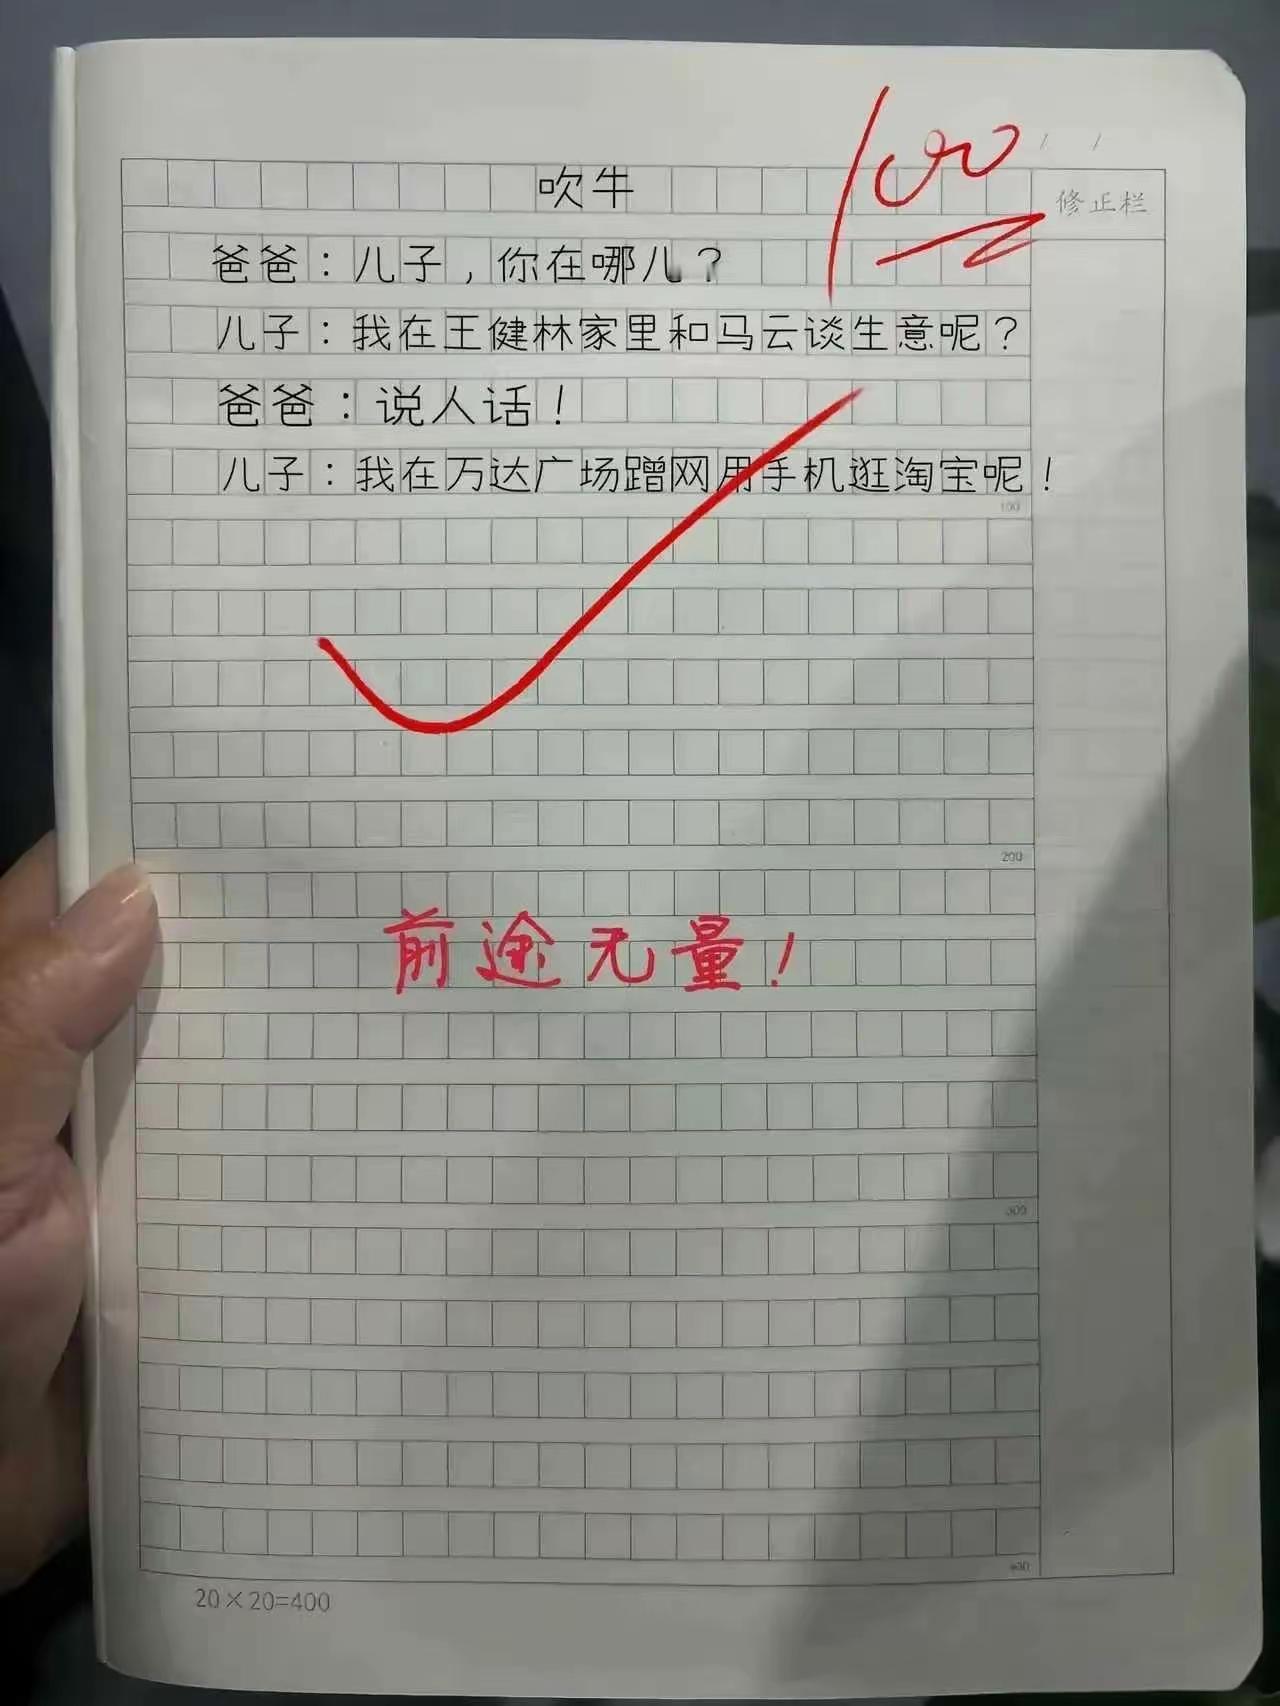 100
修正栏
吹牛
爸爸：儿子，你在哪儿？
儿子：我在王健林家里和马云谈生意呢？
爸爸：说人话！
儿子：我在万达广场蹭网用手机逛淘宝呢！
100
200
前途无量！
300
400
20×20=400